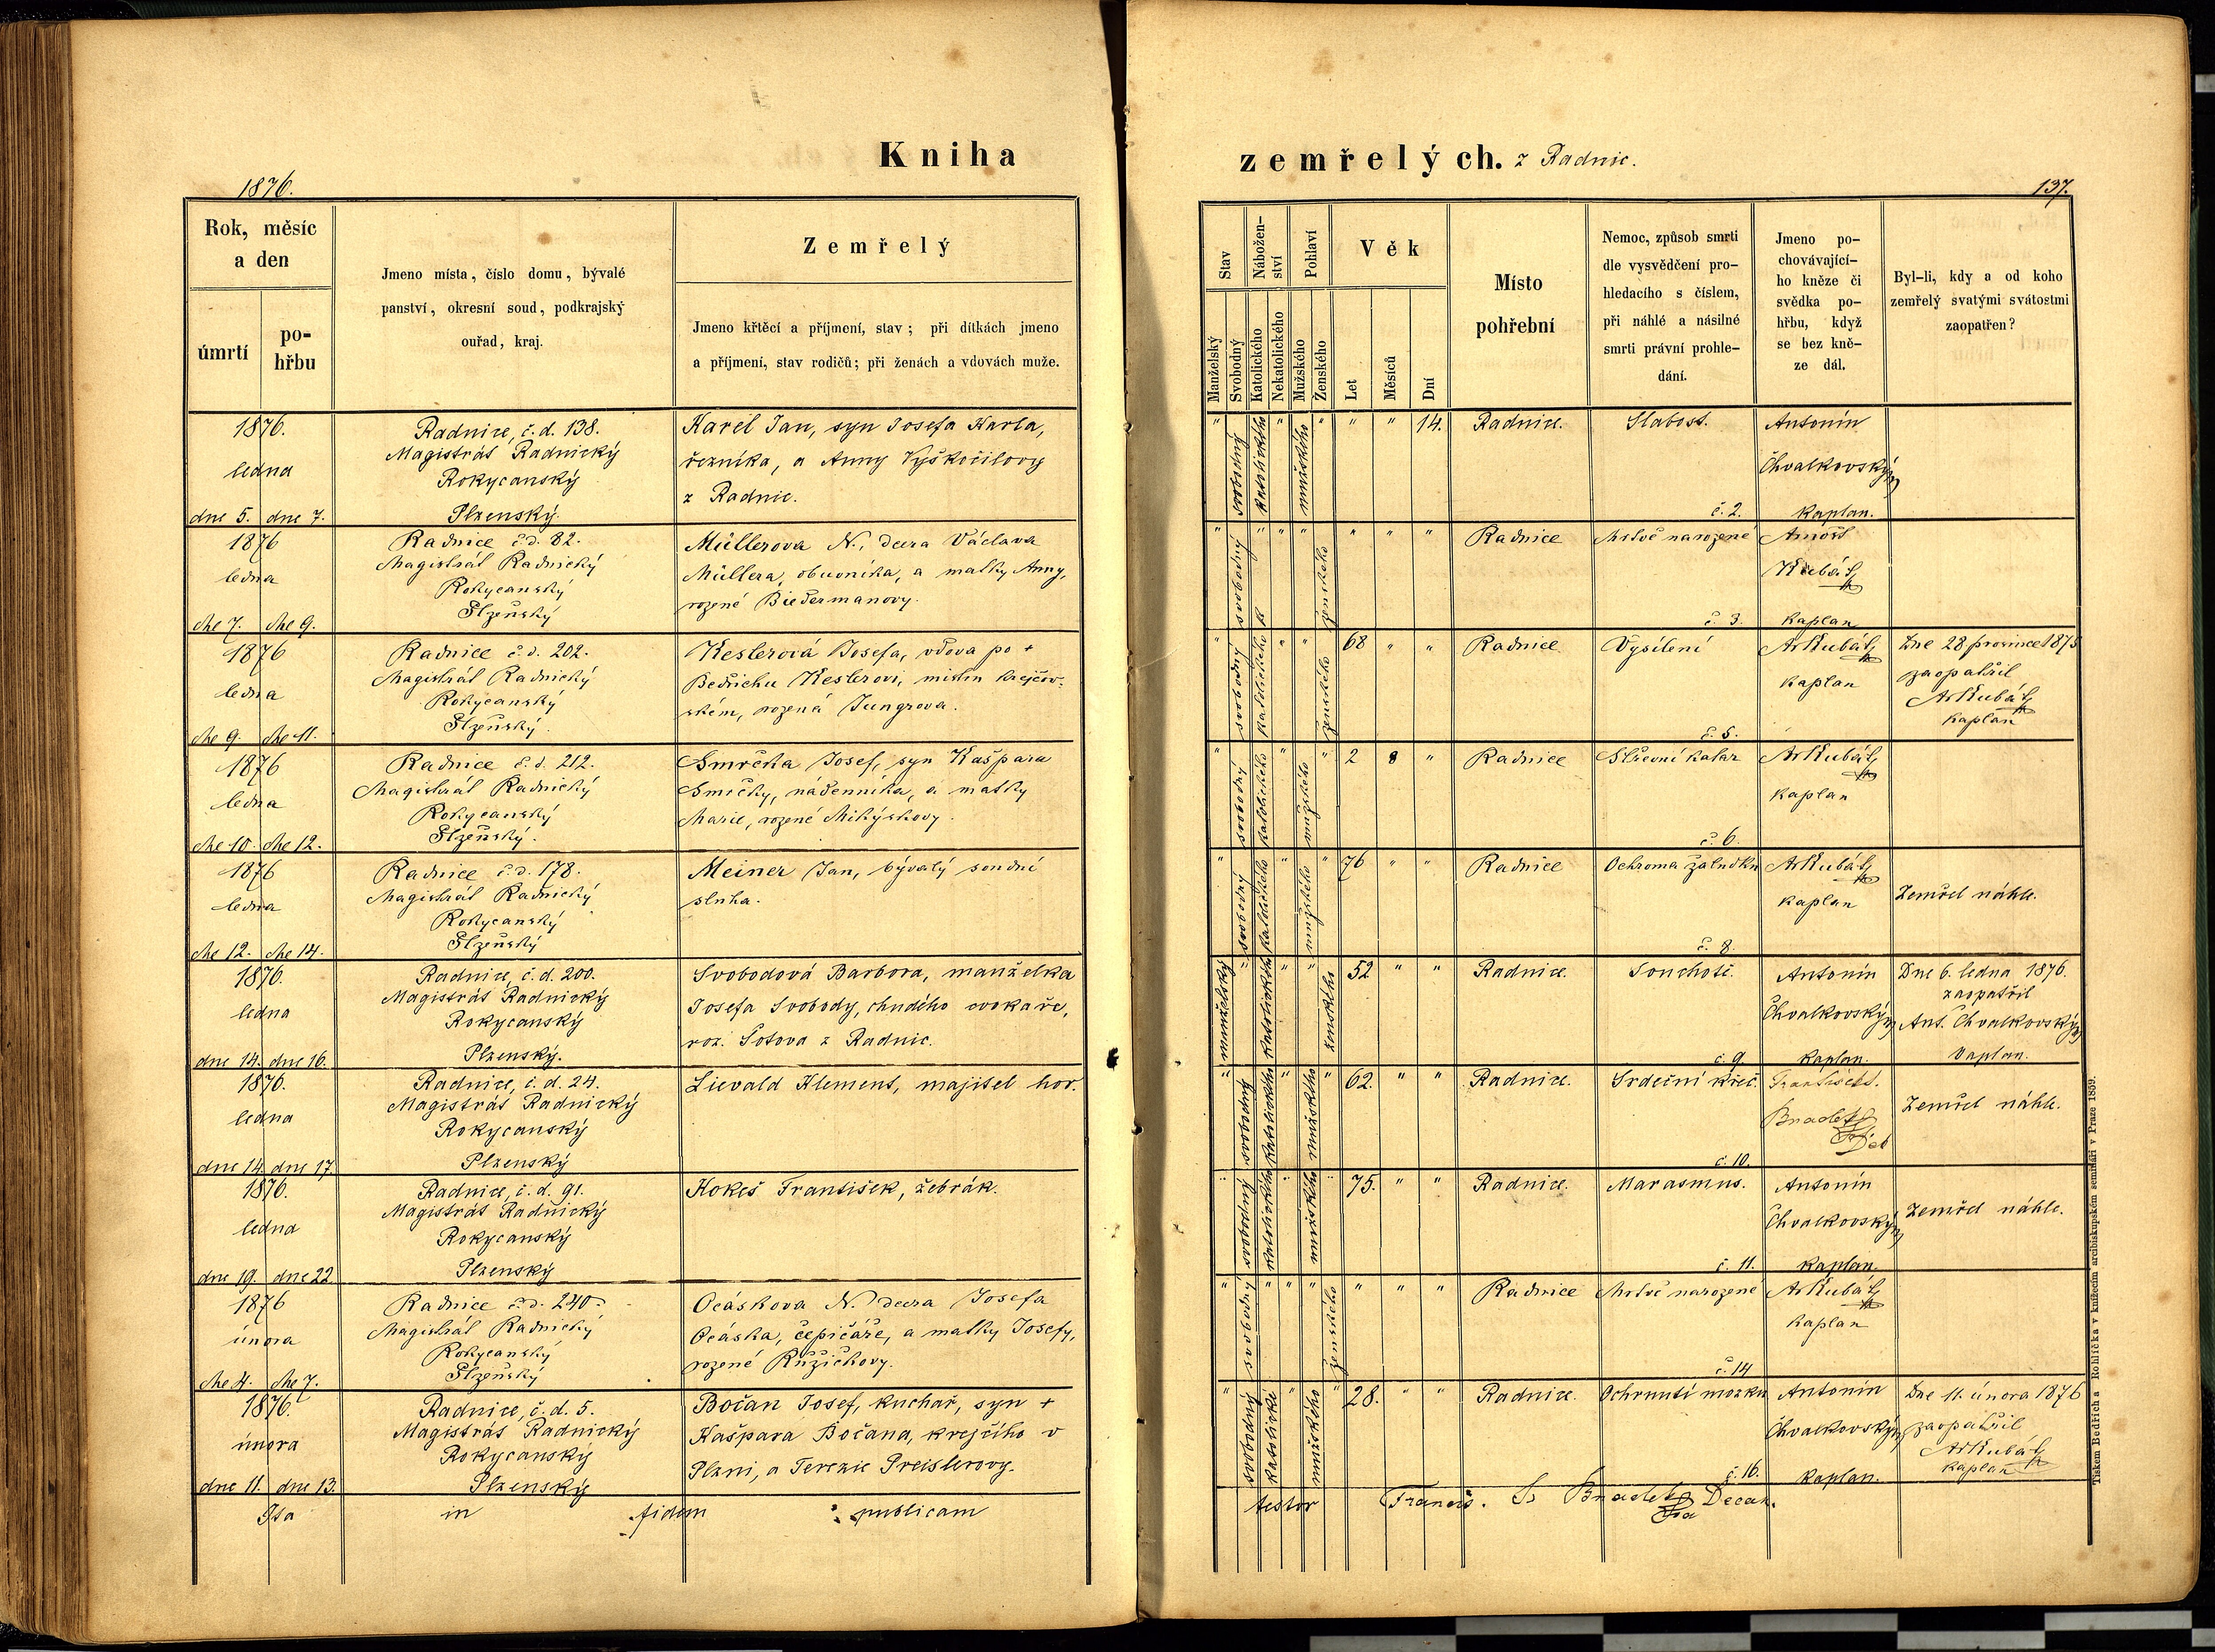 Kniha
1876.
Rok, měsíc
a den
úmrtí
po-
hřbu
Jmeno místa, číslo domu, bývalé
panství, okresní soud, podkrajský
ouřad, kraj.
Zemřelý
Jmeno křtěcí a příjmení, stav; při dítkách jmeno
a příjmení, stav rodičů; při ženách a vdovách muže.
1876.
ledna
dne 5. dne 7.
Radnice, č. d. 138.
Magistrát Radnický
Rokycanský
Plzenský.
Karel Jan, syn Josefa Karla,
řezníka, a Anny Vyskočilovy
z Radnic.
1876
ledna
dne 7. dne 9.
Radnice č. d. 82.
Magistrát Radnický
Rokycanský
Plzeňský
Müllerova N., dcera Václava
Müllera, obuvníka, a matky Anny,
rozené Biedermanovy.
1876
ledna
dne 9. dne 11.
Radnice č. d. 202.
Magistrát Radnický
Rokycanský
Plzeňský.
Keslerová Josefa, vdova po +
Bedřichu Keslerovi, mistru krejčov-
ském, rozená Jungrova.
1876
ledna
dne 10. dne 12.
Radnice č. d. 212.
Magistrát Radnický
Rokycanský
Plzeňský.
Smrčka Josef, syn Kašpara
Smrčky, nádenníka, a matky
Marie, rozené Mikýskovy.
1876
ledna
dne 12. dne 14.
Radnice č. d. 178.
Magistrát Radnický
Rokycanský
Plzeňský
Meiner Jan, bývalý soudní
sluha.
1876.
ledna
dne 14. dne 16.
Radnice, č. d. 200.
Magistrát Radnický
Rokycanský
Plzenský.
Svobodová Barbora, manželka
Josefa Svobody, chudého cvokaře,
roz. Šotova z Radnic.
1876.
ledna
dne 14. dne 17.
Radnice, č. d. 24.
Magistrát Radnický
Rokycanský
Plzenský
Lievald Klement, majitel hor.
1876.
ledna
dne 19. dne 22
Radnice, č. d. 91.
Magistrát Radnický
Rokycanský
Plzenský
Kokeš František, žebrák.
1876
února
dne 4. dne 7.
Radnice č. d. 240.
Magistrát Radnický
Rokycanský
Plzeňský
Ocáskova N. dcera Josefa
Ocáska, čepičáře, a matky Josefy,
rozené Růžičkovy.
1876.
února
dne 11. dne 13.
Radnice, č. d. 5.
Magistrát Radnický
Rokycanský
Plzenský
Bočan Josef, kuchař, syn +
Kašpara Bočana, krejčího v
Plzni, a Terezie Preislerovy.
Ita in fidem publicam
zemřelých. z Radnic.
137.
Stav
Nábožen-
ství
Pohlaví
Věk
Manželský
Svobodný
Katolického
Nekatolického
Mužského
Ženského
Let
Měsíců
Dní
Místo
pohřební
Nemoc, způsob smrti
dle vysvědčení pro-
hledacího s číslem,
při náhlé a násilné
smrti právní prohle-
dání.
Jmeno po-
chovávající-
ho kněze či
svědka po-
hřbu, když
se bez kně-
ze dál.
Byl-li, kdy a od koho
zemřelý svatými svátostmi
zaopatřen?
" svobodný katolického " mužského " " " 14. Radnice. Slabost. Antonín
Chvalkovský
č. 2. kaplan.
" svobodný " " " ženského " " " Radnice Mrtvě narozené Arnošt
Kubát
č. 3. kaplan
" svobodný katolického " " ženského 68 " " Radnice Vysílení Ar Kubát Dne 28 prosince 1875
kaplan zaopatřil
Ar Kubát
kaplan
č. 5.
" svobodný katolického " mužského " 2 8 " Radnice Střevní katar Ar Kubát
kaplan
č. 6.
" svobodný katolického " mužského " 76 " " Radnice Ochroma žaludku Ar Kubát
kaplan Zemřel náhle.
č. 8.
manželský " katolického " " ženského 52 " " Radnice. Souchotě. Antonín Dne 6. ledna 1876.
zaopatřil
Chvalkovský Ant. Chvalkovský
č. 9 kaplan. kaplan.
" svobodný katolického " mužského " 62. " " Radnice. Srdeční křeč. František
Zemřel náhle.
č. 10.
" svobodný katolického " mužského " 75. " " Radnice. Marasmus. Antonín
Chvalkovský Zemřel náhle.
č. 11. kaplan.
" svobodný " " " ženského " " " Radnice Mrtvě narozené Ar Kubát
kaplan
č. 14
" svobodný katolický " mužského " 28. " " Radnice. Ochrnutí mozku Antonín Dne 11. února 1876
Chvalkovský zaopatřil
Ar Kubát
č. 16. kaplan. kaplan
testor Francis. Decan.
Tiskem Bedřicha Rohlíčka v knížecím arcibiskupském semináři v Praze 1859.